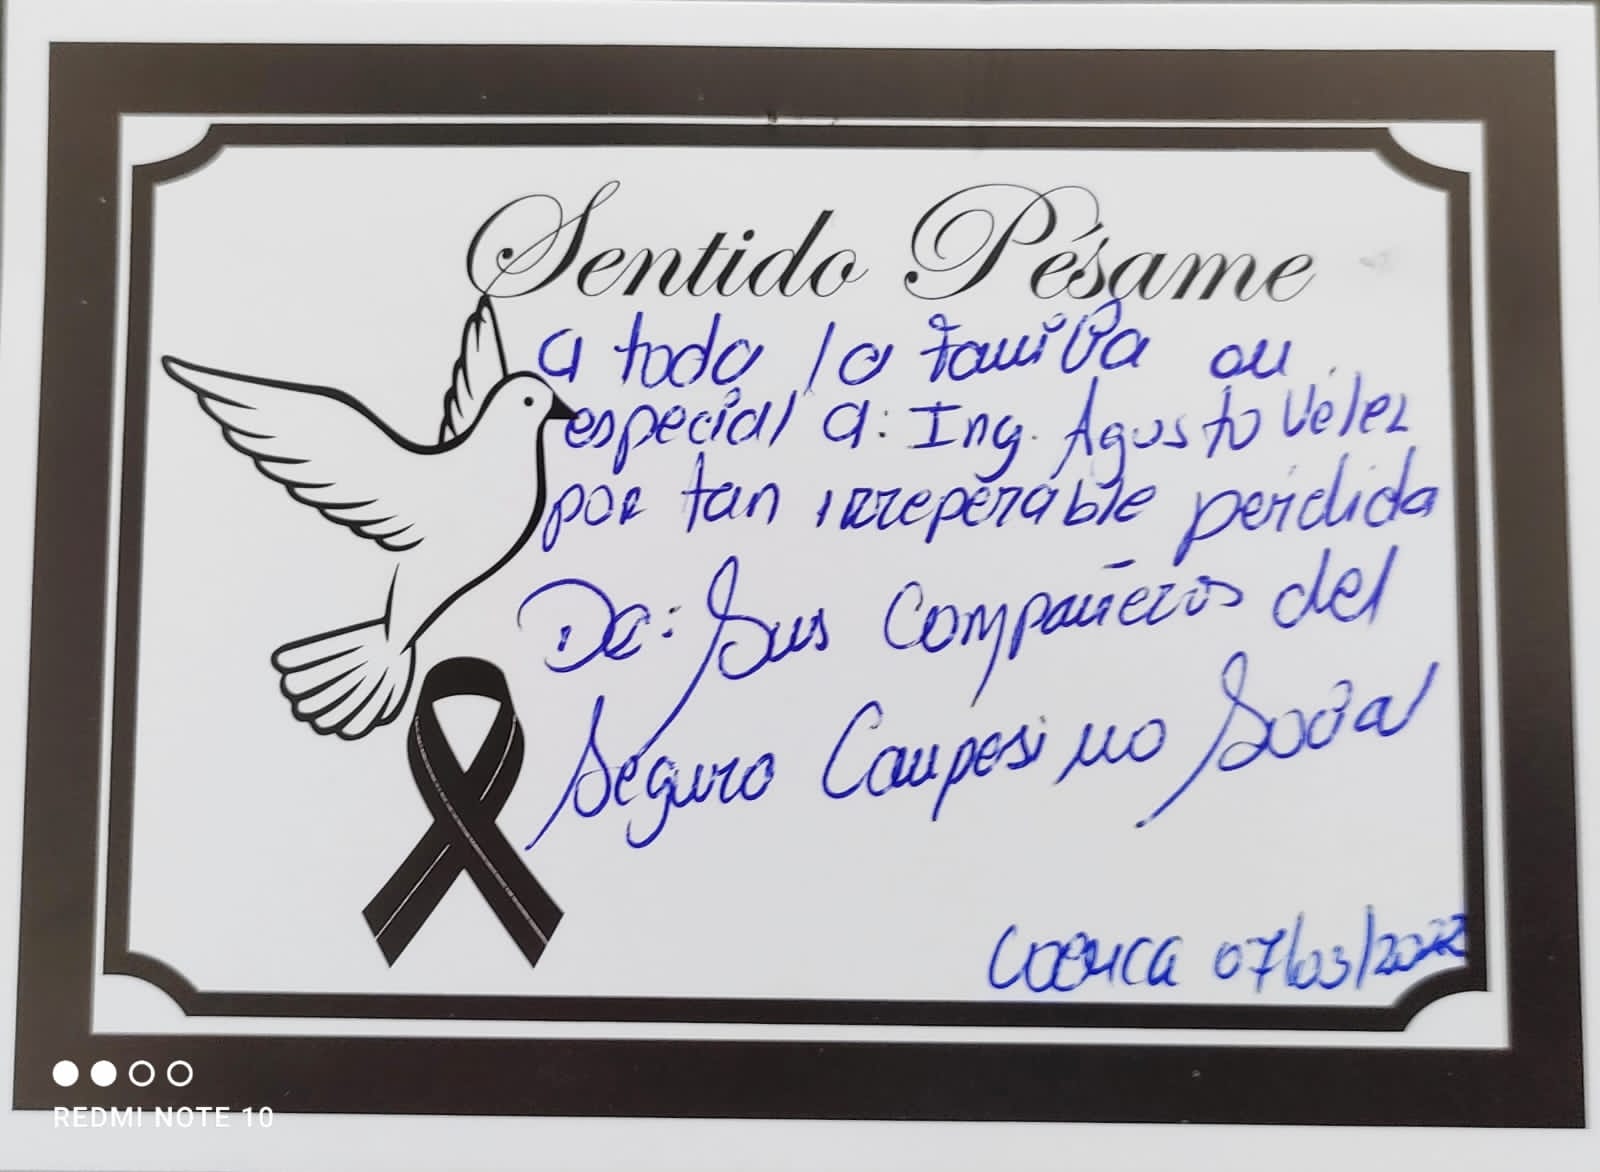 Sentido Pésame
a toda la familia en
especial a: Ing. Agusto Vélez
por tan irreperable perdida
De: Sus Compañeros del
Seguro Campesino Social
Cuenca 07/03/2022
REDMI NOTE 10